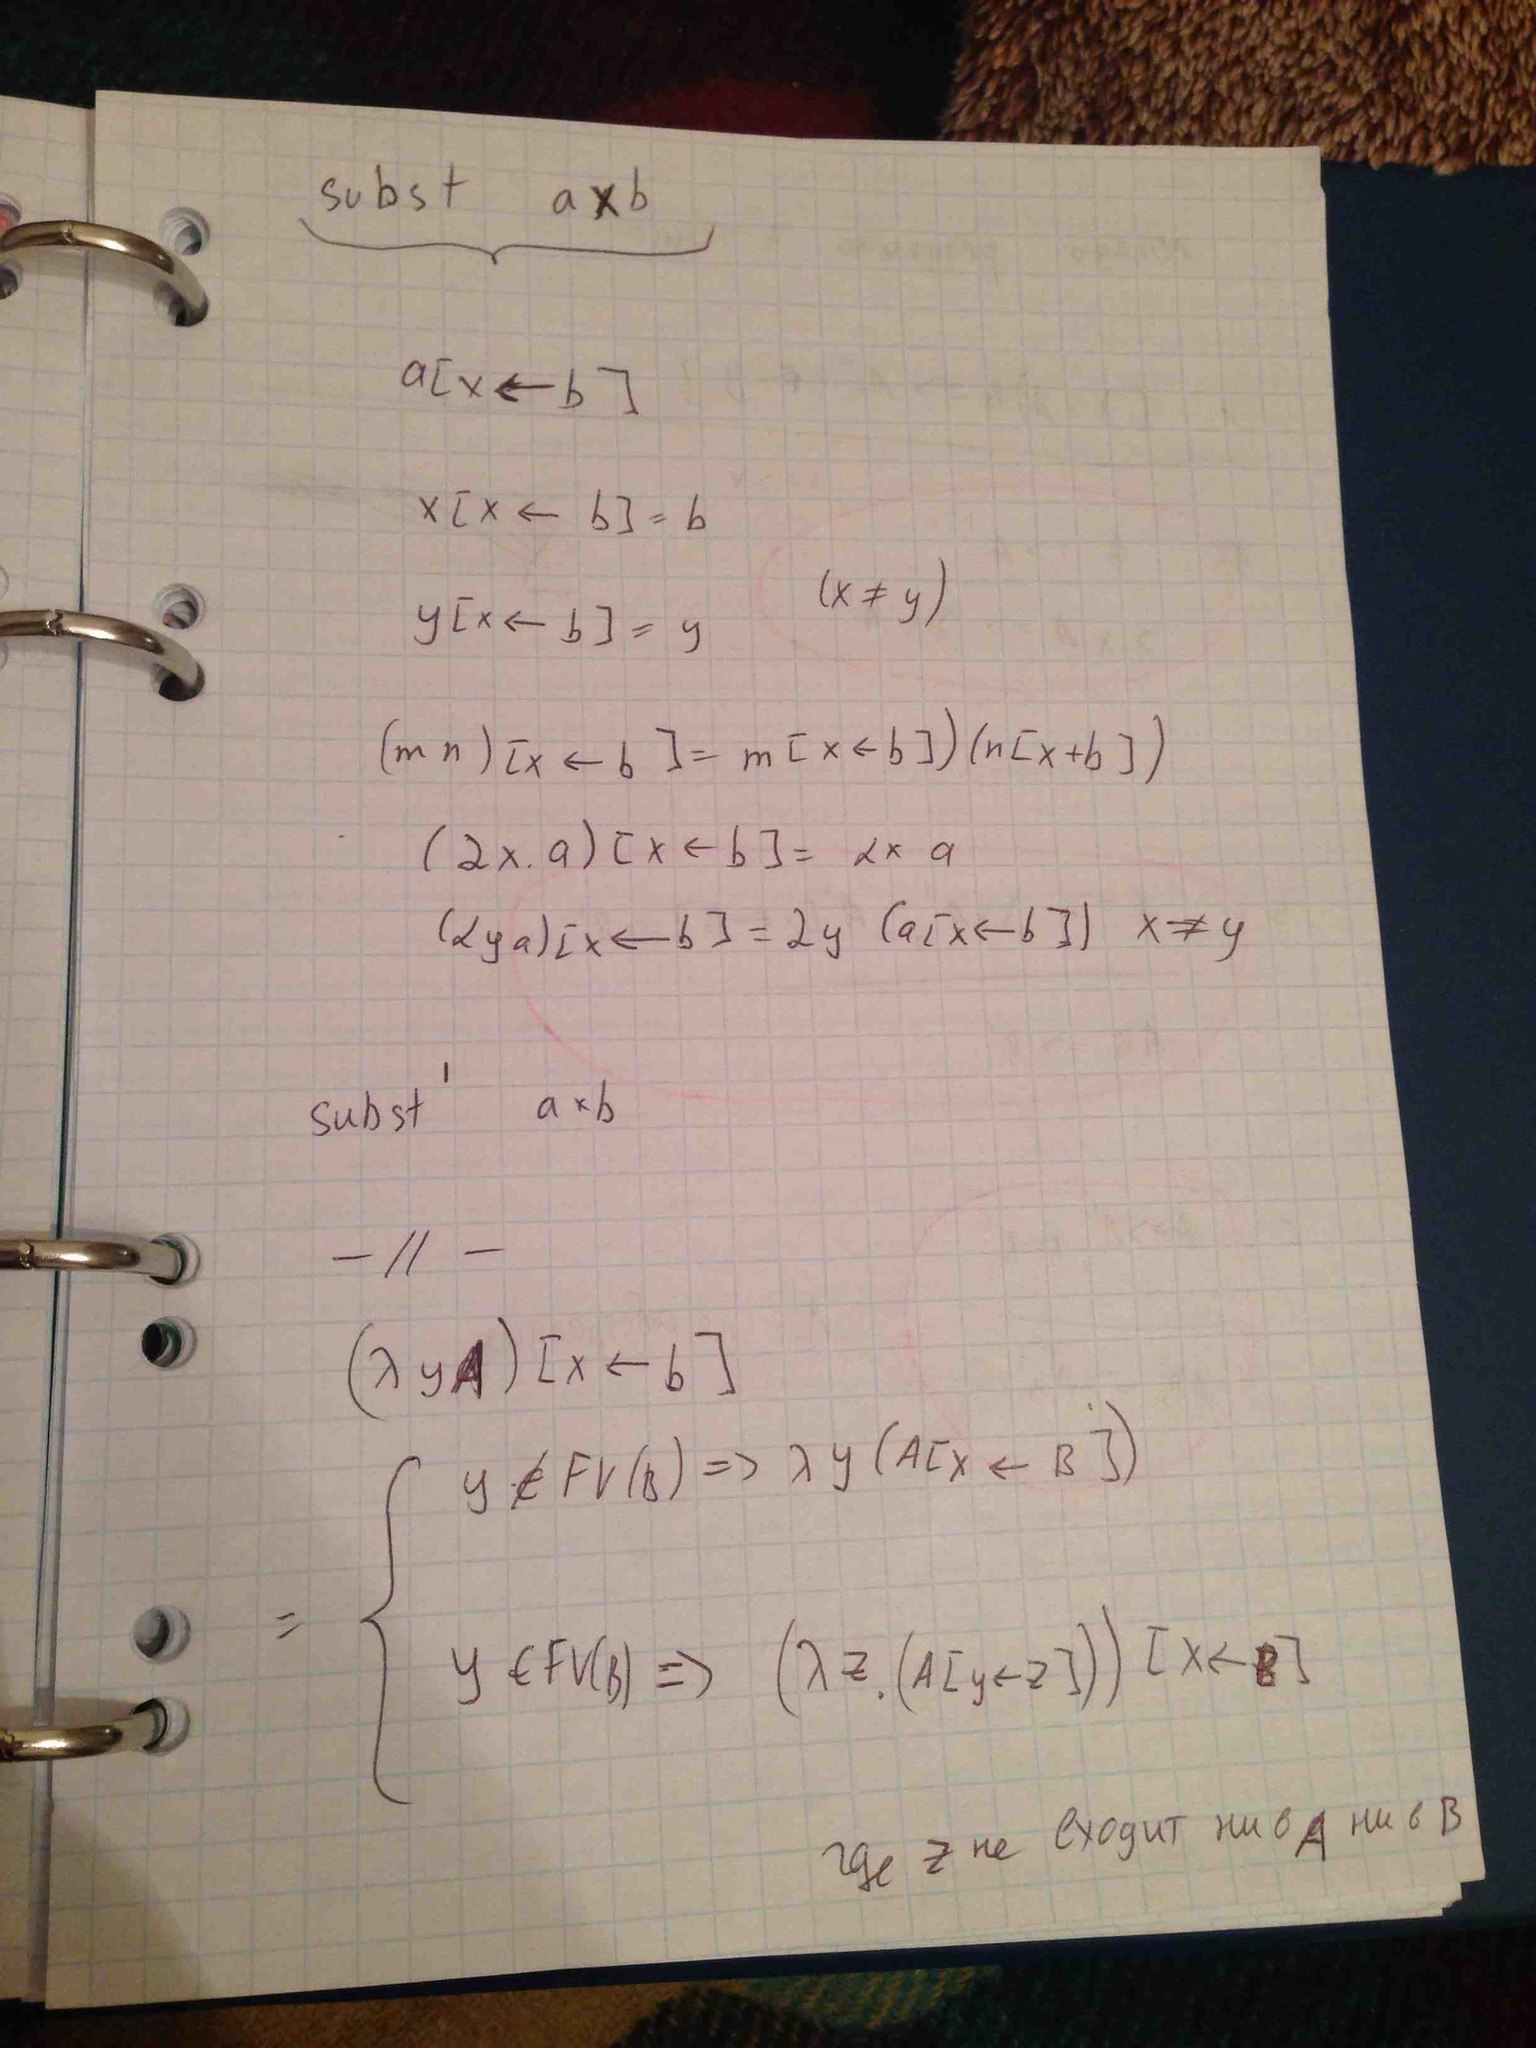 subst a x b
a[x ← b]
x[x ← b] = b
y[x ← b] = y (x ≠ y)
(m n)[x ← b] = m[x ← b])(n[x ← b])
(λx. a)[x ← b] = λx a
(λy a)[x ← b] = λy (a[x ← b]) x ≠ y
subst' a x b
— // —
(λ y A)[x ← b]
y ∉ FV(B) => λ y (A[x ← B])
=
y ∈ FV(B) => (λ z. (A[y ← z])) [x ← B]
где z не входит ни в A ни в B